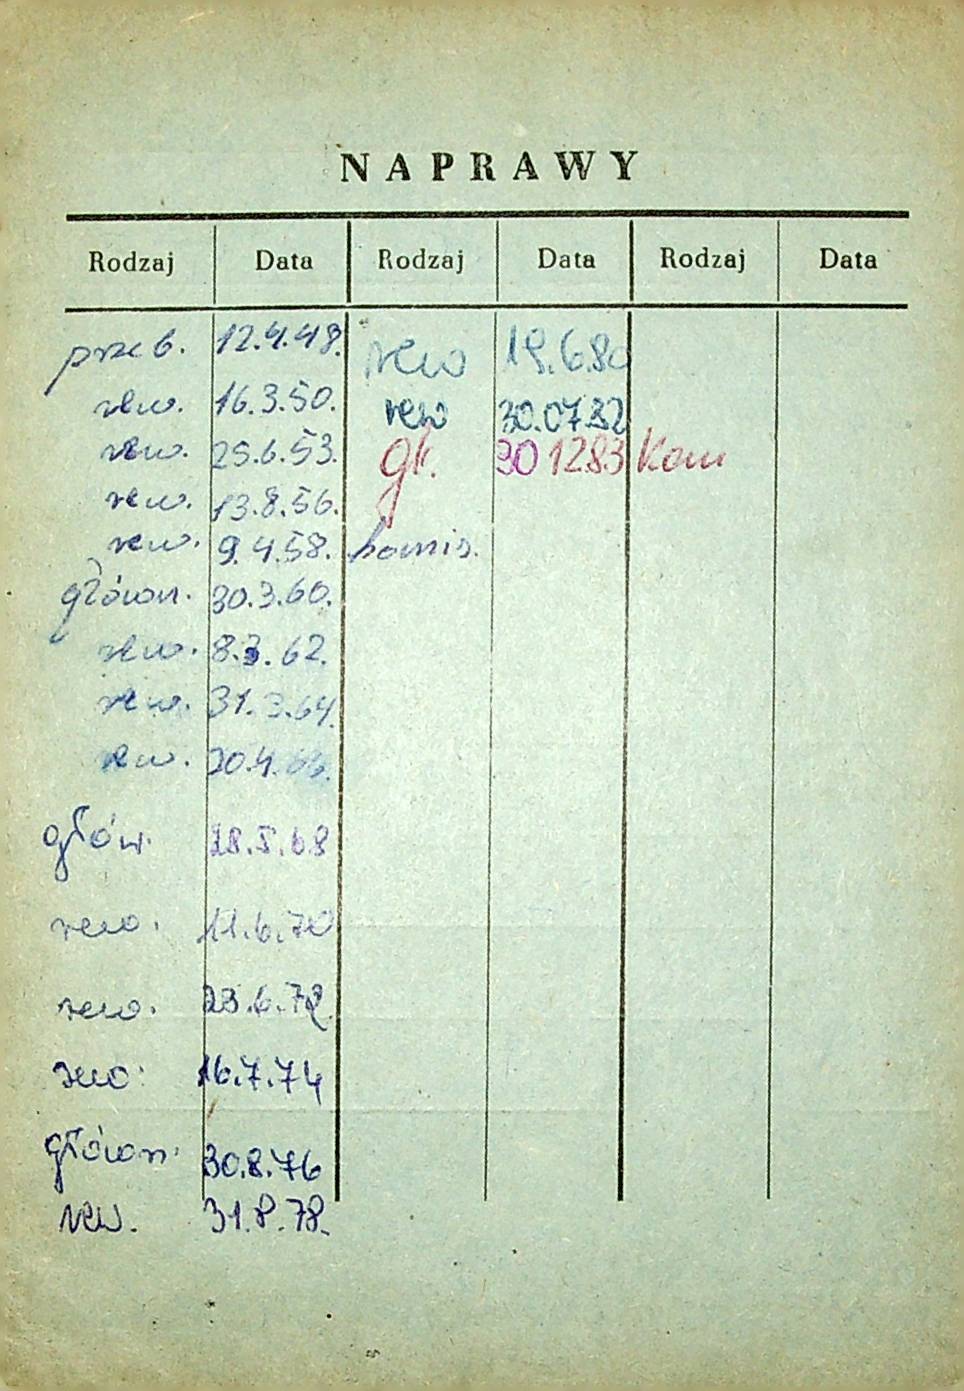 NAPRAWY
Rodzaj Data Rodzaj Data Rodzaj Data
przeb. 12.4.48. rew 19.6.80
rew. 16.3.50. rew 30.07.82
rew. 25.6.53. gł. 30 12 83 Kom
rew. 13.8.56.
rew. 9.4.58.
główn. 30.3.60.
rew. 8.3.62.
rew. 31.3.64.
rew. 20.4.66.
głów. 28.5.68
rew. 11.6.70
rew. 23.6.72.
rew. 16.7.74
główn. 30.8.76
rew. 31.8.78.